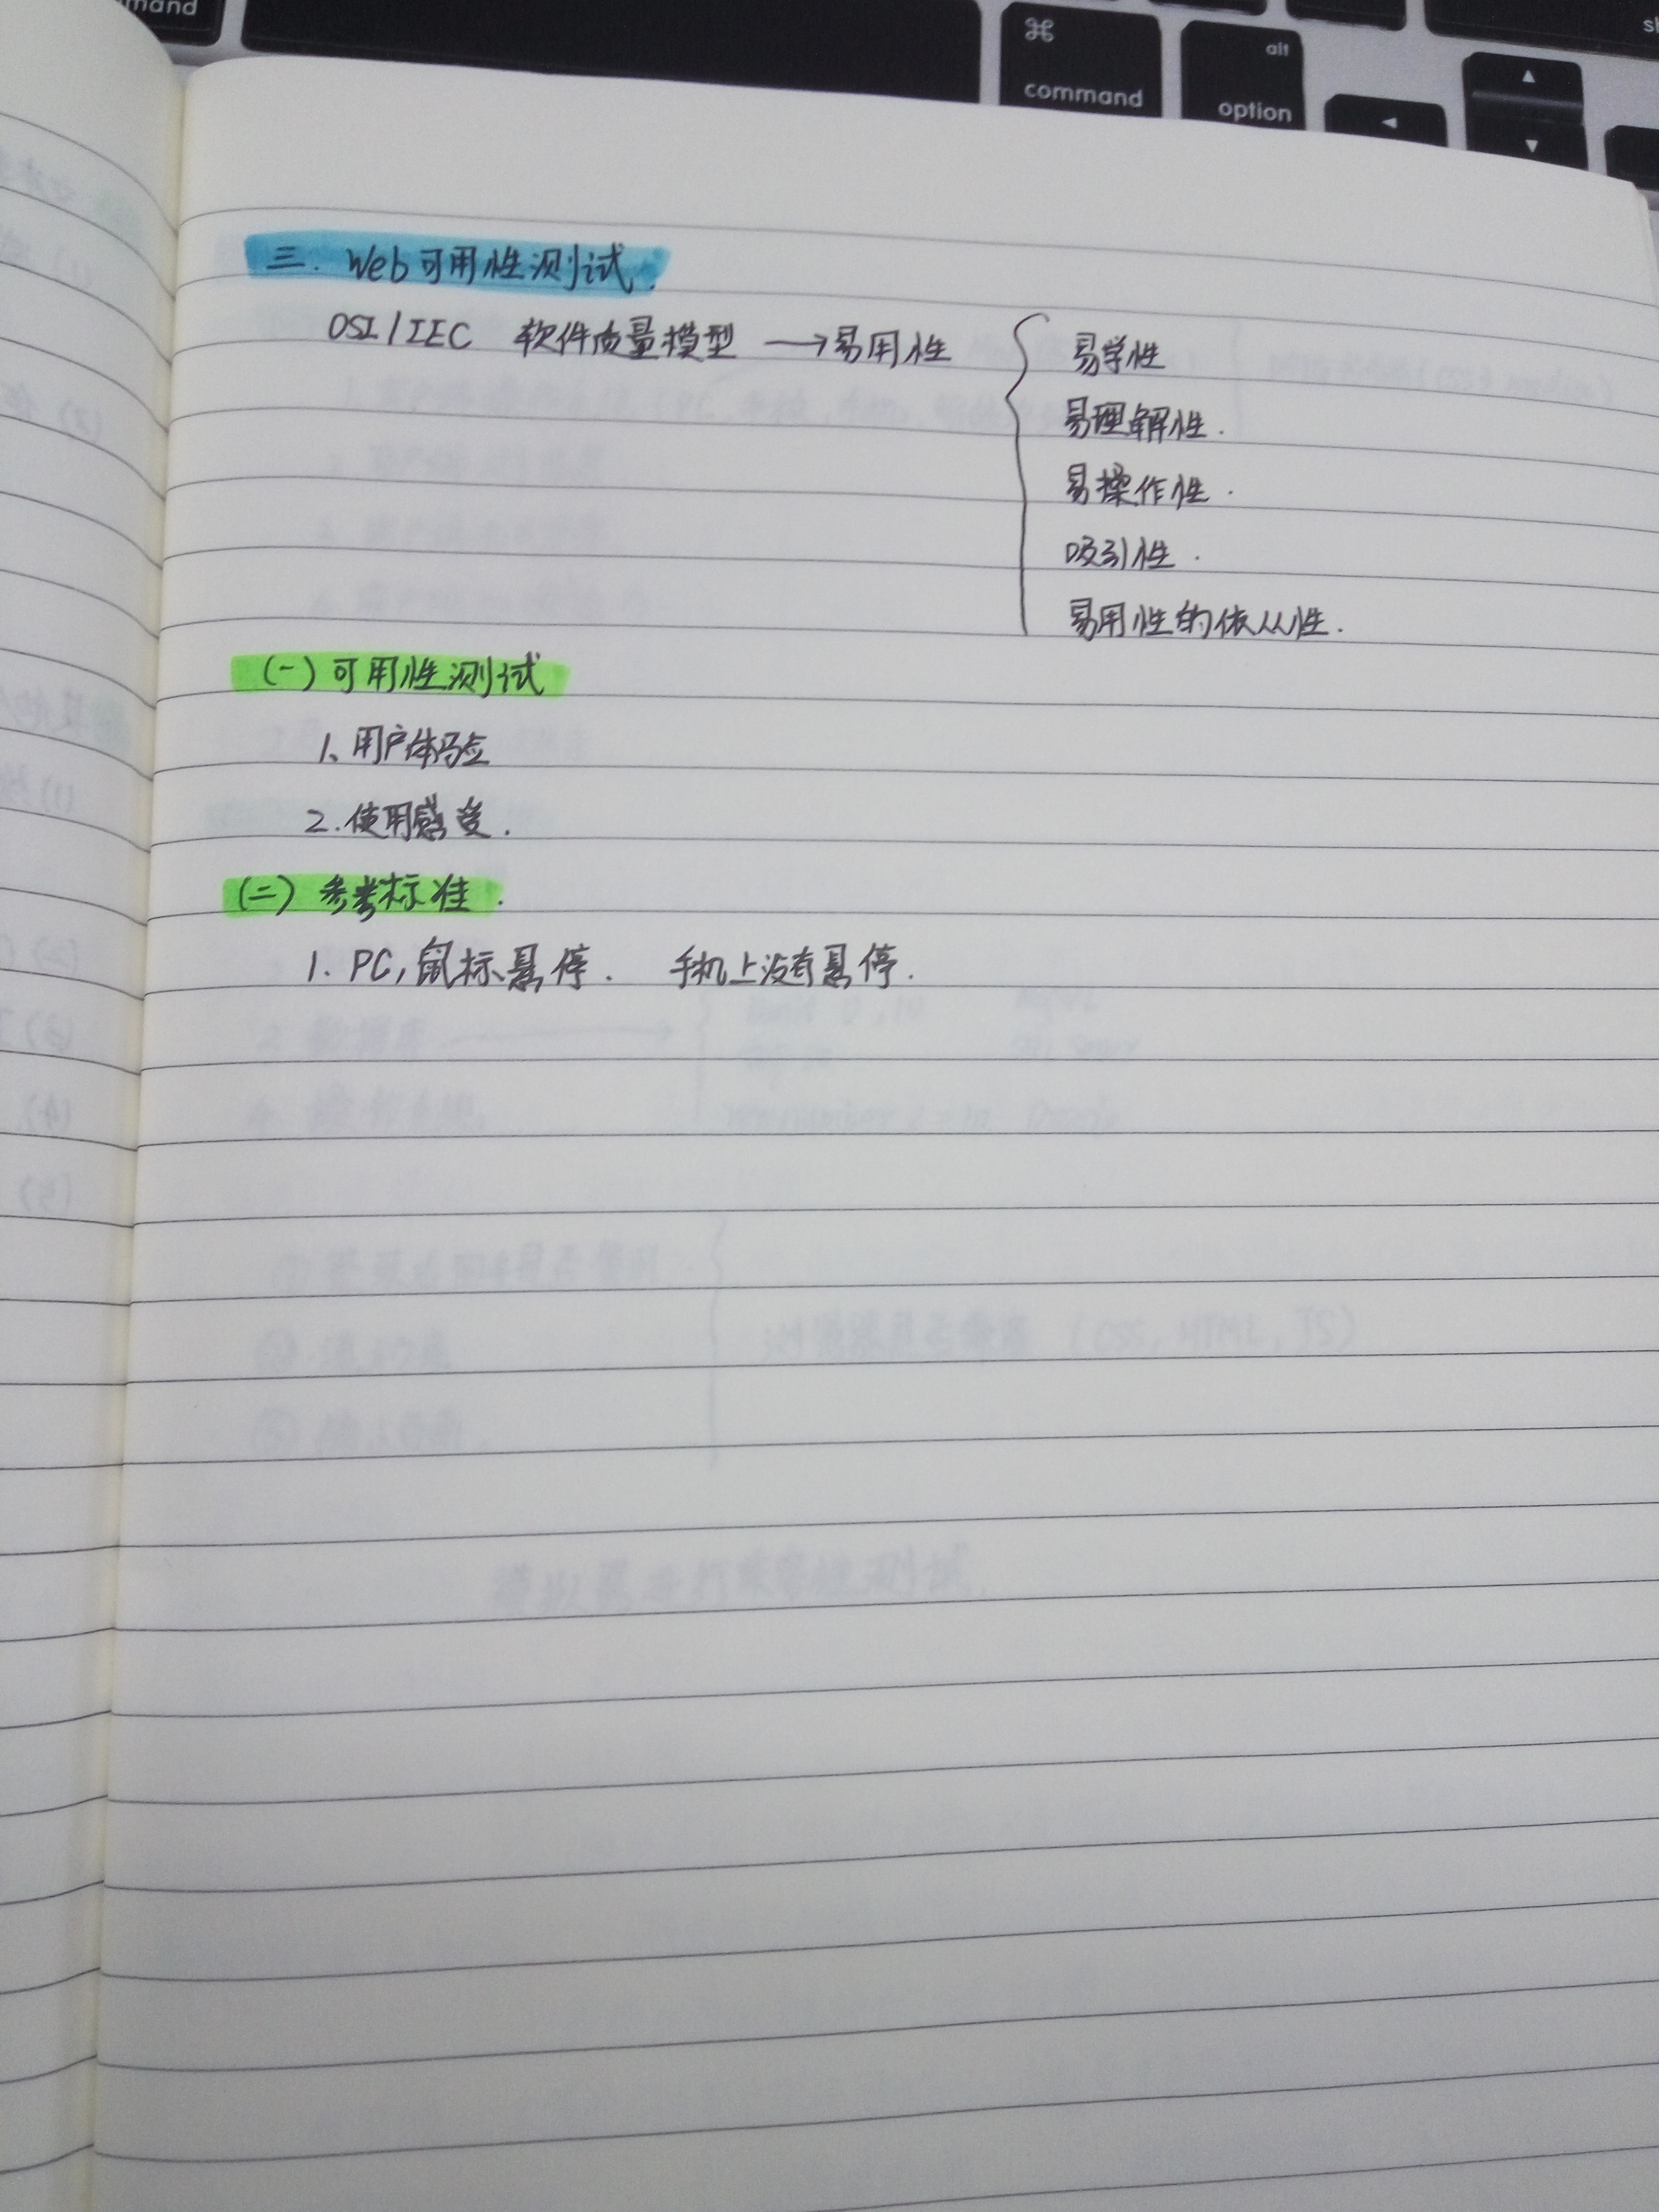 mand
⌘
command
alt
option
三. Web可用性测试.
OSI/IEC 软件质量模型 →易用性 { 易学性
易理解性.
易操作性.
吸引性.
易用性的依从性.
(一) 可用性测试
1、用户体验
2.使用感受.
(二) 参考标准.
1. PC,鼠标悬停. 手机上没有悬停.